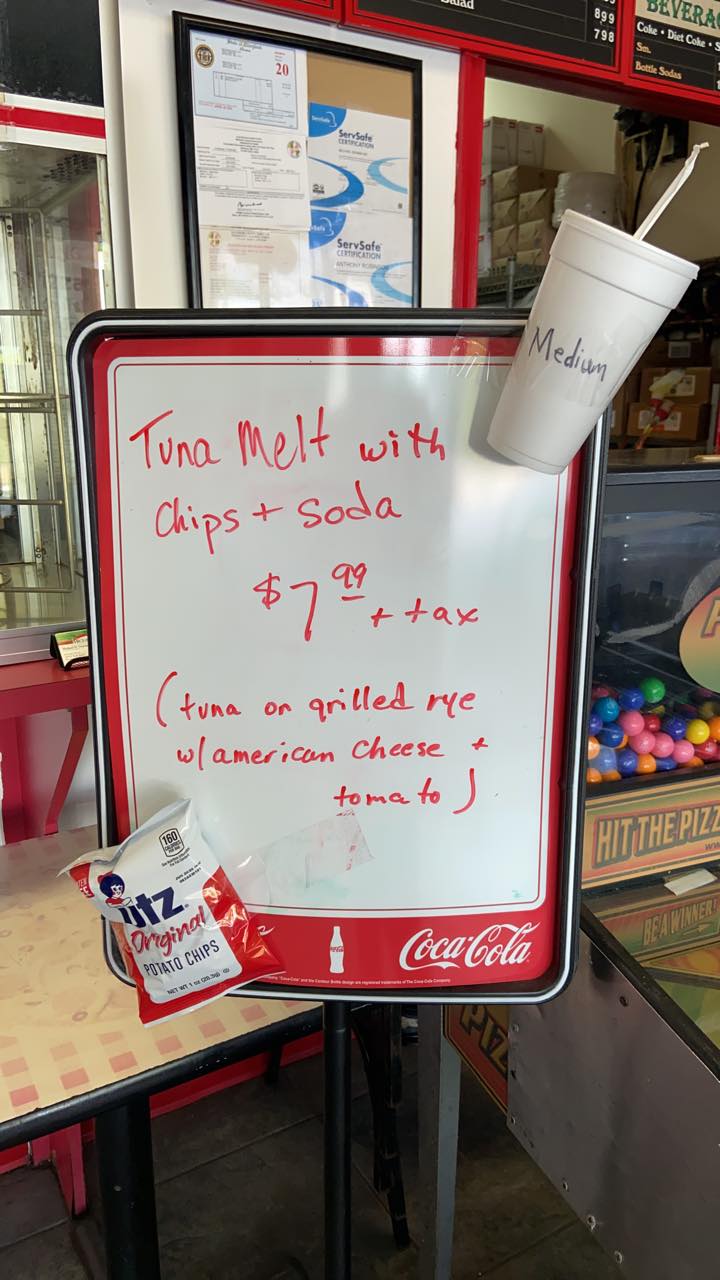 Salad
899
798
BEVERA
Coke • Diet Coke • S
Sm.
Bottle Sodas
20
ServSafe
CERTIFICATION
ServSafe
CERTIFICATION
Medium
Tuna Melt with
Chips + Soda
$7.99 + tax
(tuna on grilled rye
w/american cheese +
tomato)
160
CALORIES
utz
Original
POTATO CHIPS
NET WT 1 oz
Coca-Cola
HIT THE PIZZ
BE A WINNER!
PIZ